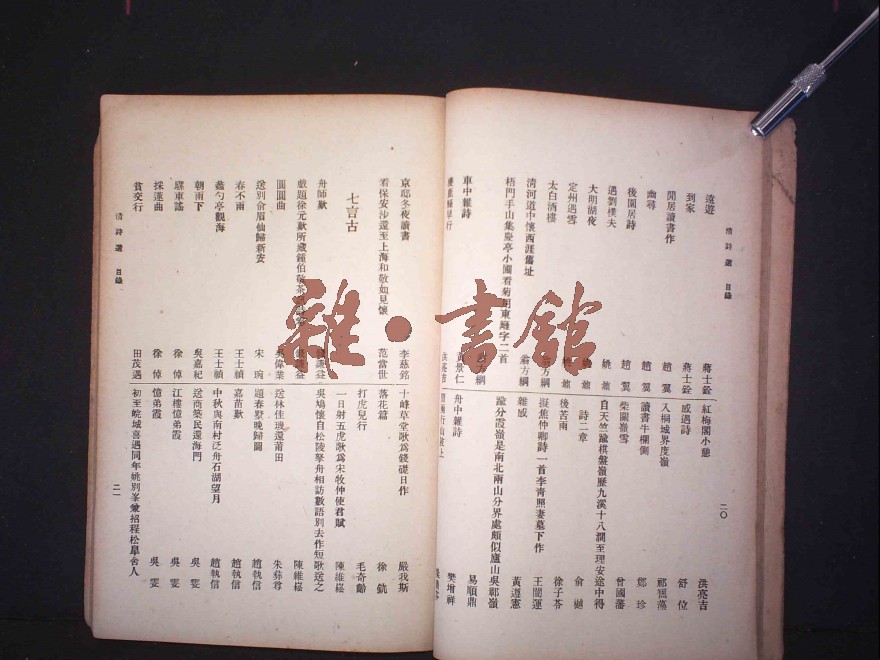 清詩選 目錄
二〇
遠遊 蔣士銓
到家 蔣士銓
閒居讀書作 趙翼
幽尋 趙翼
後園居詩 趙翼
遇劉樸夫 姚鼐
大明湖夜
定州遇雪
太白酒樓 翁方綱
清河道中懷西涯舊址 翁方綱
梧門手山集慶亭小圃看菊
車中雜詩 黃景仁
洪亮吉
紅梅閣小憩 洪亮吉
感遇詩 舒位
入桐城界度嶺 祁寯藻
讀書牛欄側 鄭珍
柴關嶺雪 曾國藩
自天竺踰棋盤嶺歷九溪十八澗至理安途中得詩二章 俞樾
後苦雨 徐子苓
擬焦仲卿詩一首李青照妻墓下作 王闓運
雜感 黃遵憲
踰分霞嶺是南北兩山分界處頗似廬山 吳鄣嶺
易順鼎
舟中雜詩 樊增祥
京邸冬夜讀書 李慈銘
看保安沙還至上海和敬如見懷 范當世
七言古
舟師歎
戲題徐元歎所藏鍾伯敬茶
圓圓曲 吳偉業
送別俞眉仙歸新安 宋琬
春不雨 王士禎
蠡勺亭觀海 王士禎
朝雨下 吳嘉紀
驛車謠 徐倬
採蓮曲 徐倬
貧交行 田茂遇
十峰草堂歌為錢礎日作 嚴我斯
落花篇 徐釚
打虎兒行 毛奇齡
一日射五虎歌為宋牧仲使君賦 陳維崧
吳鳩懷自松陵拏舟相訪數語別去作短歌送之 陳維崧
送林佳璣還莆田 朱彝尊
題春墅晚歸圖 趙執信
嘉苗歎 趙執信
中秋與南村泛舟石湖望月 趙執信
送商築民還海門 吳雯
江樓憶弟霞 吳雯
憶弟霞 吳雯
初至皖城喜遇同年姚別峯兼招程松皐舍人 吳雯
清詩選 目錄
二一
雜·書館